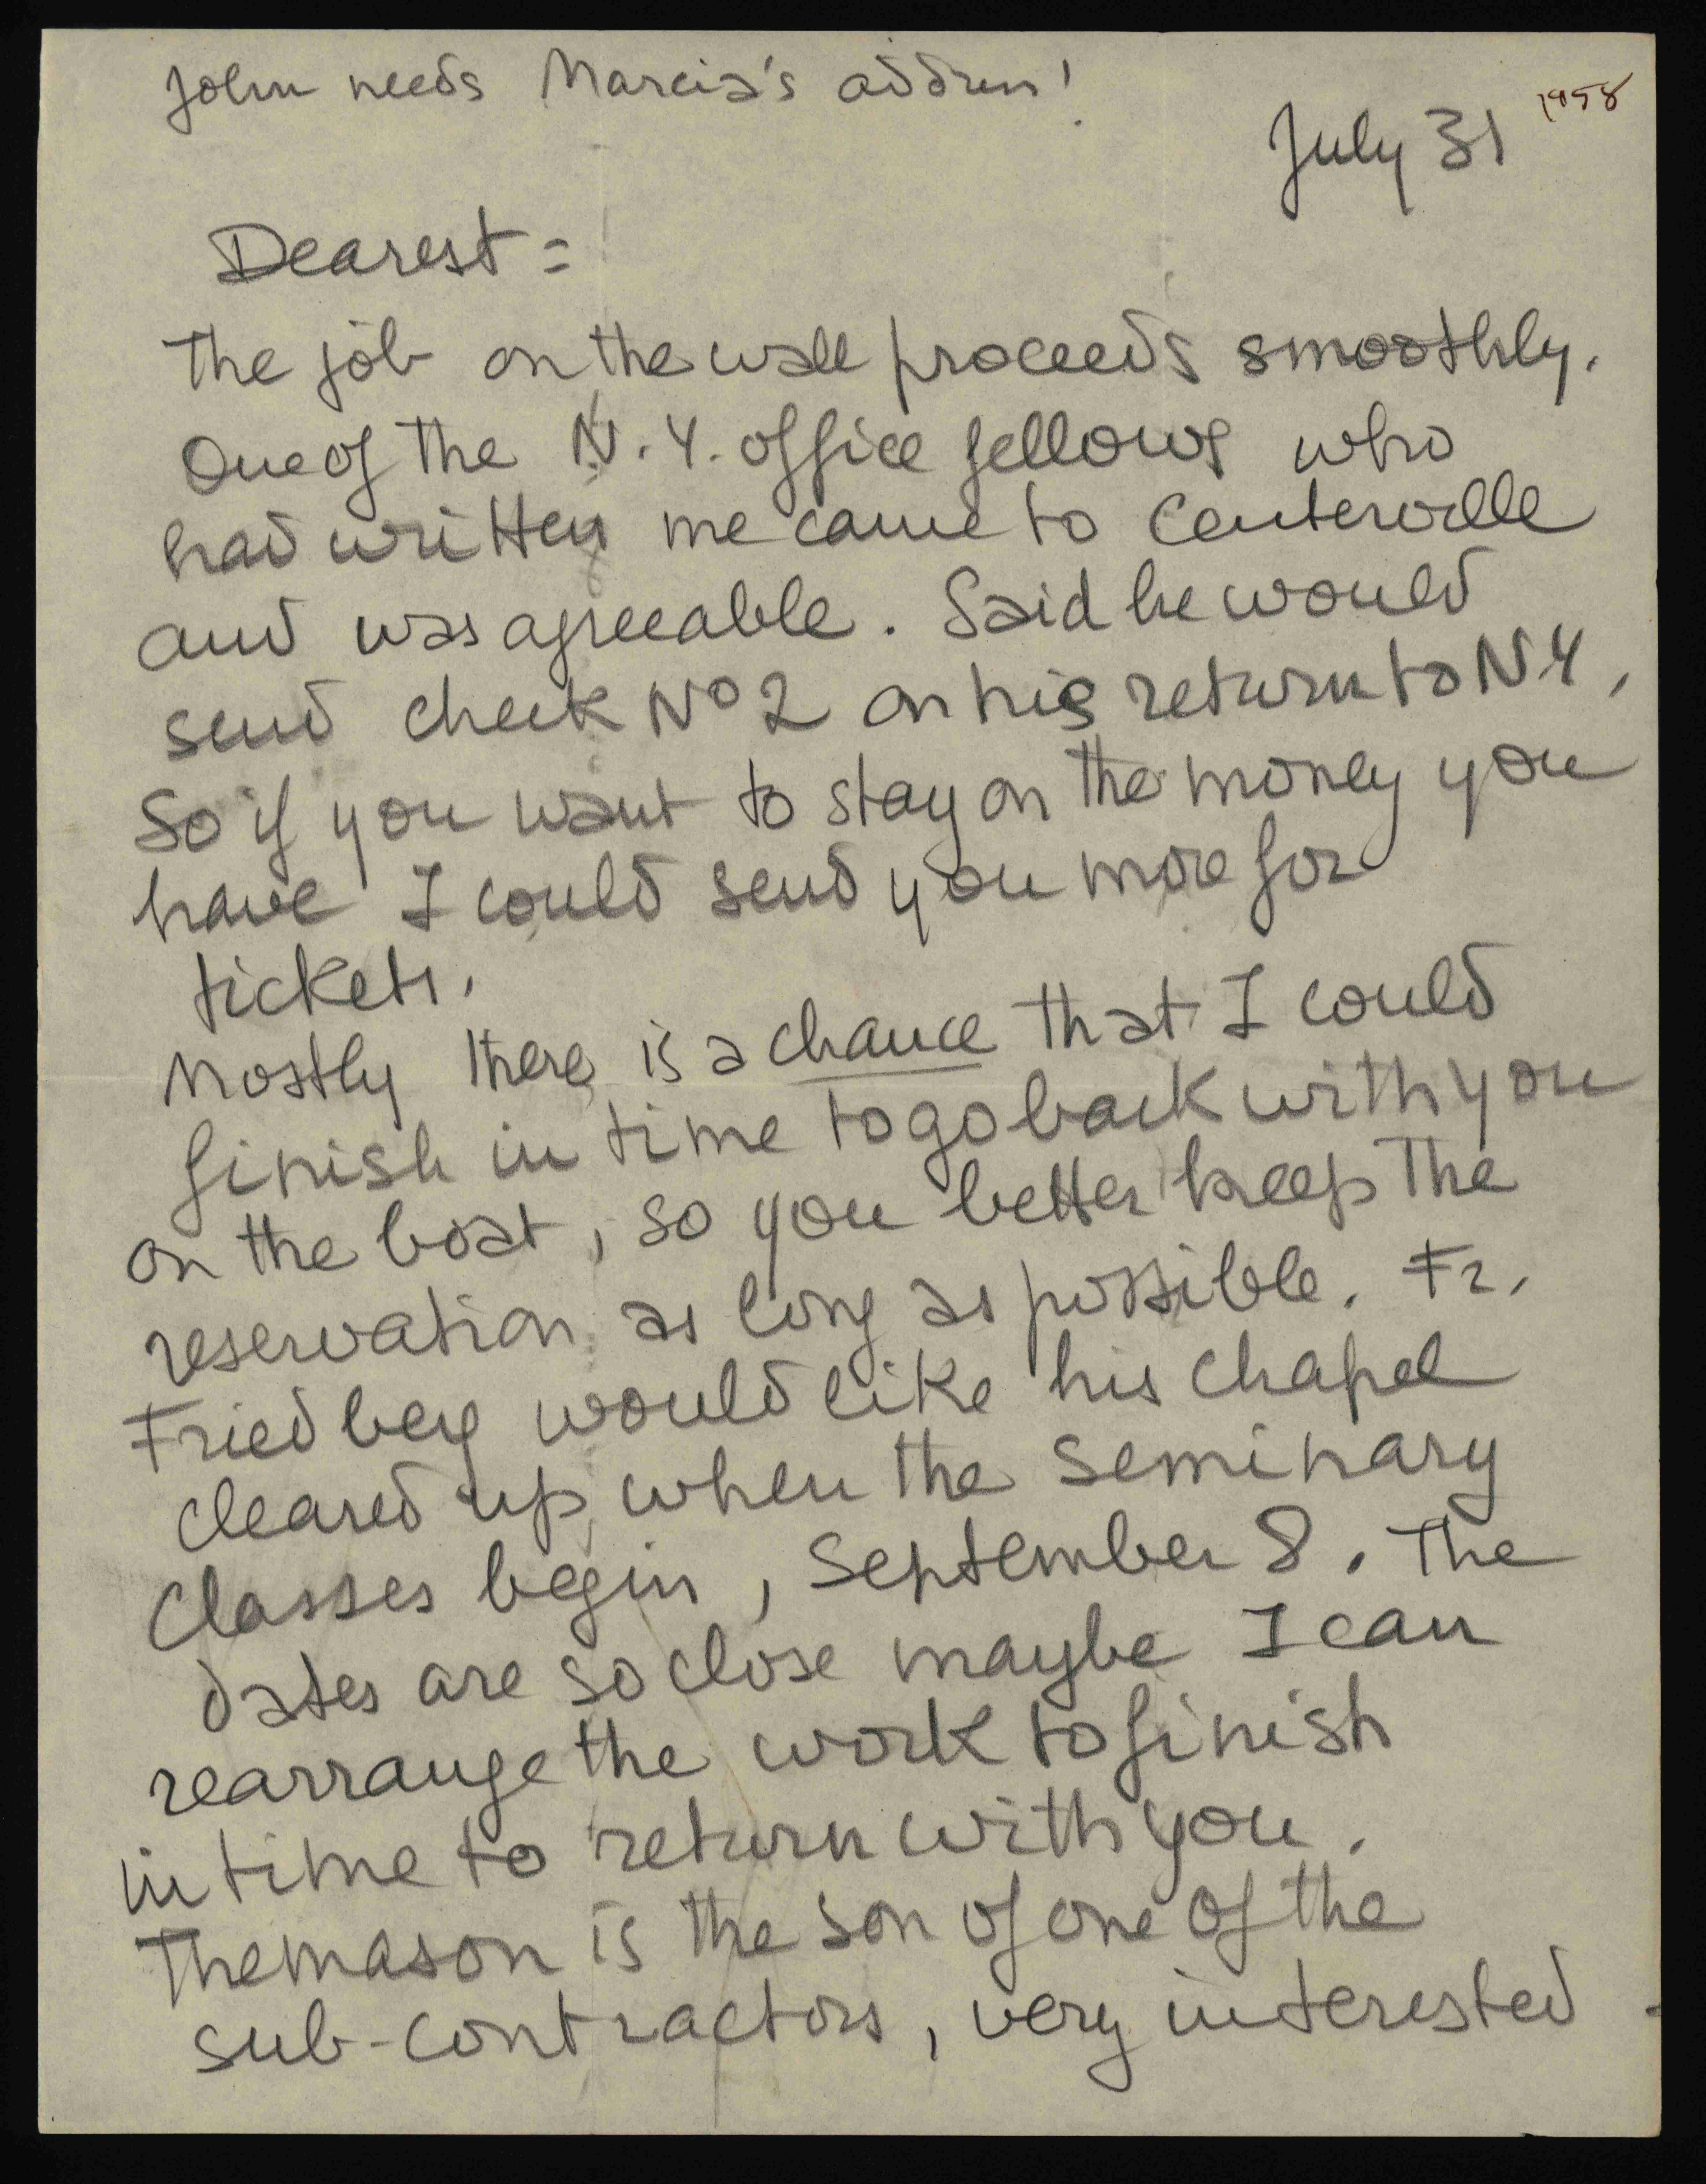 John needs Marcia's address!
July 31 1958
Dearest =
The job on the wall proceeds smoothly.
One of the N.Y. office fellows who
had written me came to Centerville
and was agreeable. Said he would
send check No 2 on his return to N.Y,
So if you want to stay on the money you
have I could send you more for
tickets.
Mostly there is a chance that I could
finish in time to go back with you
on the boat, so you better keep the
reservation as long as possible. Fr.
Friedberg would like his chapel
cleared up when the seminary
classes begin, September 8. The
dates are so close maybe I can
rearrange the work to finish
in time to return with you.
The mason is the son of one of the
sub-contractors, very interested